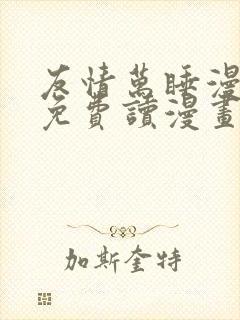 友情萬睡漫
免費讀漫畫
加斯奎特